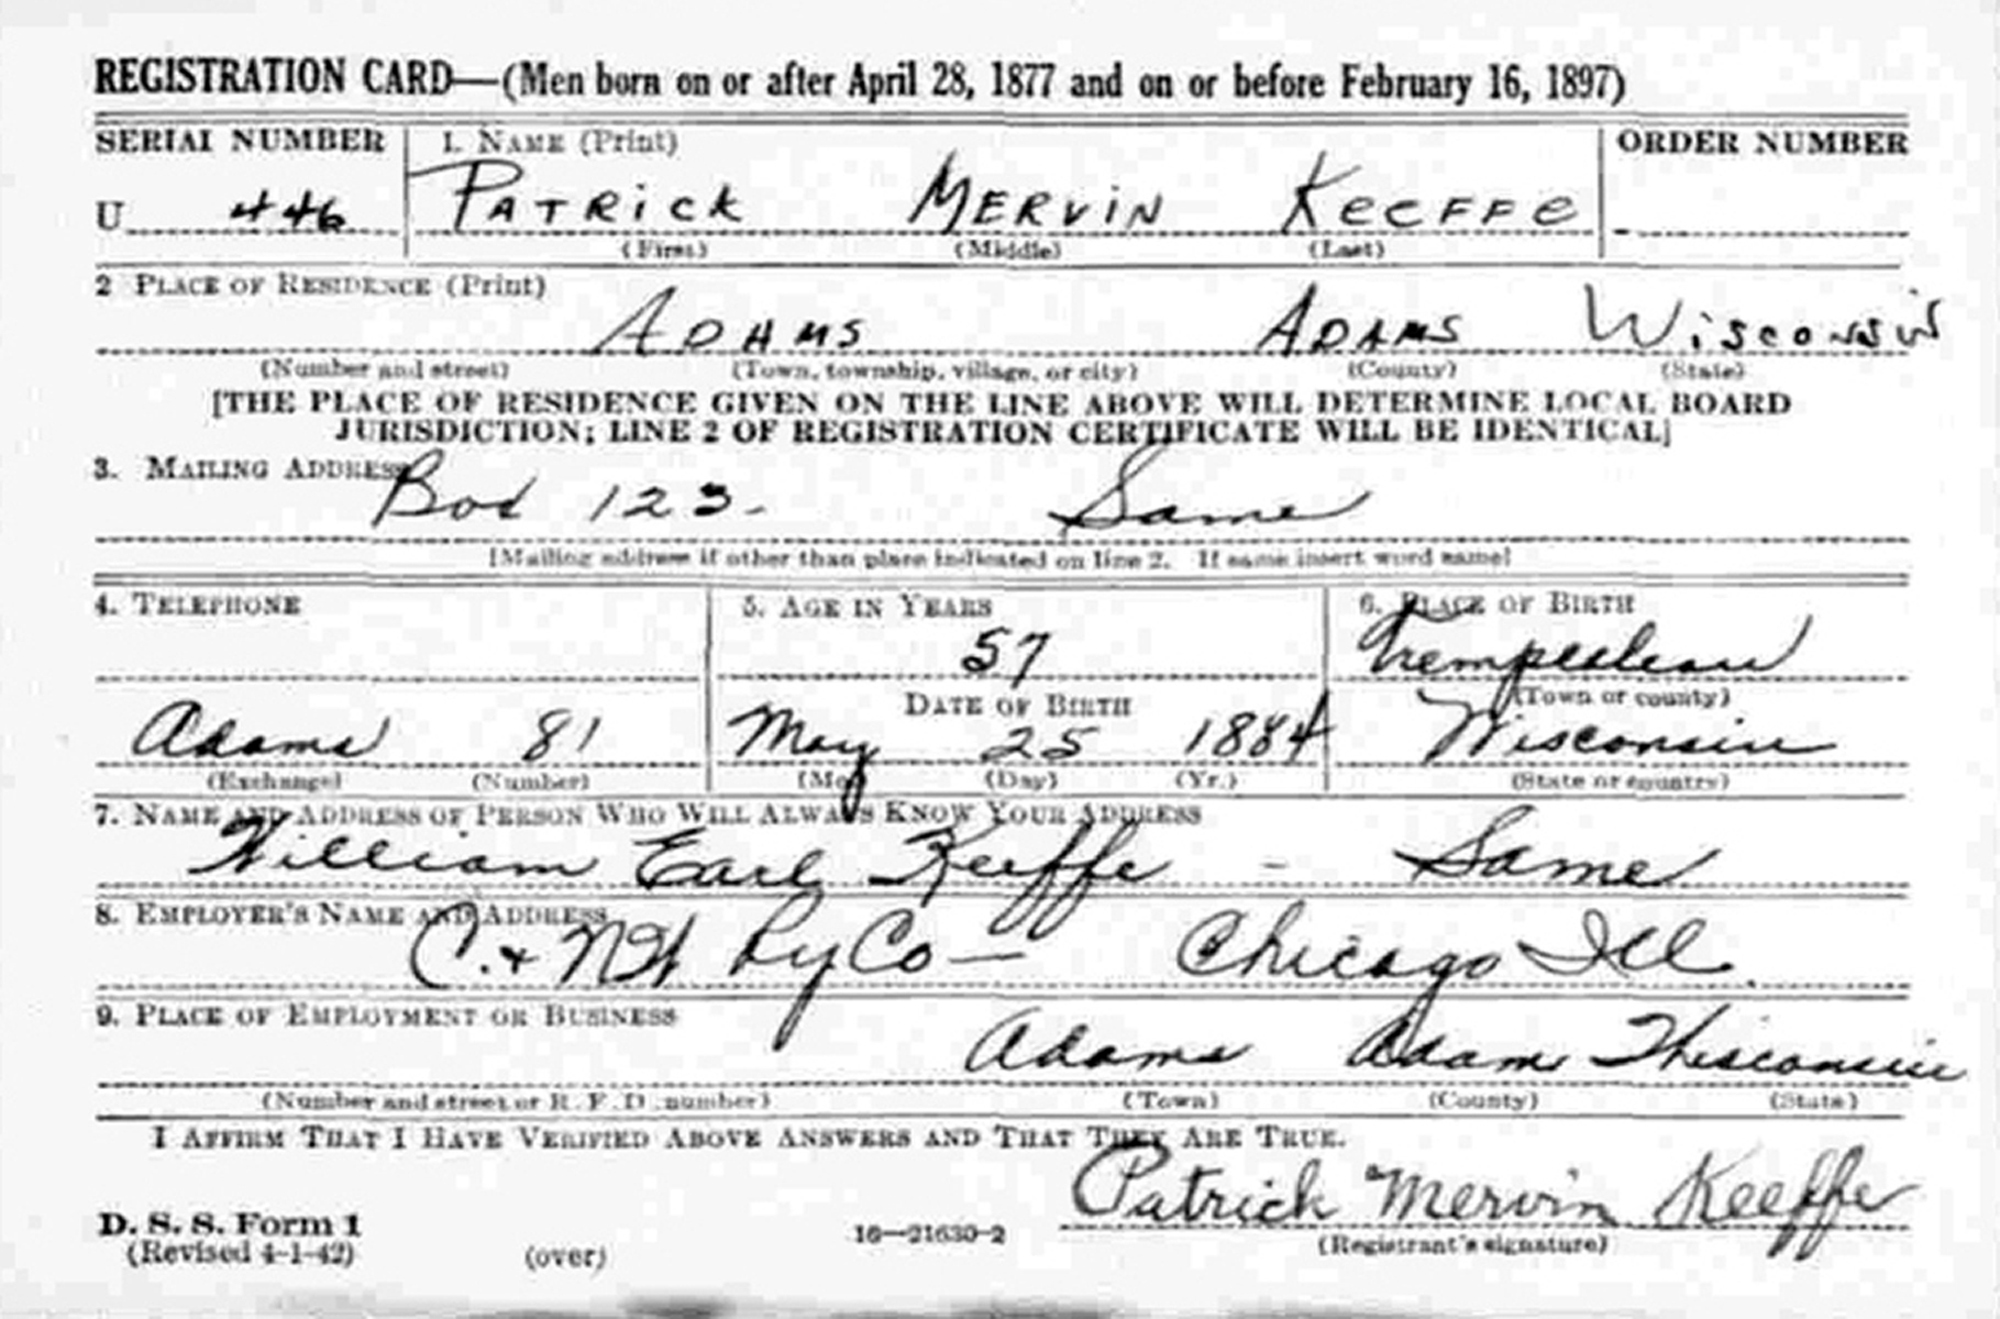 REGISTRATION CARD—(Men born on or after April 28, 1877 and on or before February 16, 1897)
SERIAL NUMBER 1. NAME (Print) ORDER NUMBER
U 446 PATRICK MERVIN KEEFFE
(First) (Middle) (Last)
2 PLACE OF RESIDENCE (Print)
ADAMS ADAMS WISCONSIN
(Number and street) (Town, township, village, or city) (County) (State)
[THE PLACE OF RESIDENCE GIVEN ON THE LINE ABOVE WILL DETERMINE LOCAL BOARD
JURISDICTION; LINE 2 OF REGISTRATION CERTIFICATE WILL BE IDENTICAL]
3. MAILING ADDRESS
Box 123- Same
[Mailing address if other than place indicated on line 2. If same insert word same]
4. TELEPHONE 5. AGE IN YEARS 6. PLACE OF BIRTH
57 Trempealeau
DATE OF BIRTH (Town or county)
Adams 81 May 25 1884 Wisconsin
(Exchange) (Number) (Mo.) (Day) (Yr.) (State or country)
7. NAME AND ADDRESS OF PERSON WHO WILL ALWAYS KNOW YOUR ADDRESS
William Earl Keeffe - Same
8. EMPLOYER'S NAME AND ADDRESS
C. & NW Ry Co — Chicago Ill.
9. PLACE OF EMPLOYMENT OR BUSINESS
Adams Adams Wisconsin
(Number and street or R. F. D. number) (Town) (County) (State)
I AFFIRM THAT I HAVE VERIFIED ABOVE ANSWERS AND THAT THEY ARE TRUE.
Patrick Mervin Keeffe
D. S. S. Form 1
(Revised 4-1-42) (over) 16—21630-2 (Registrant's signature)